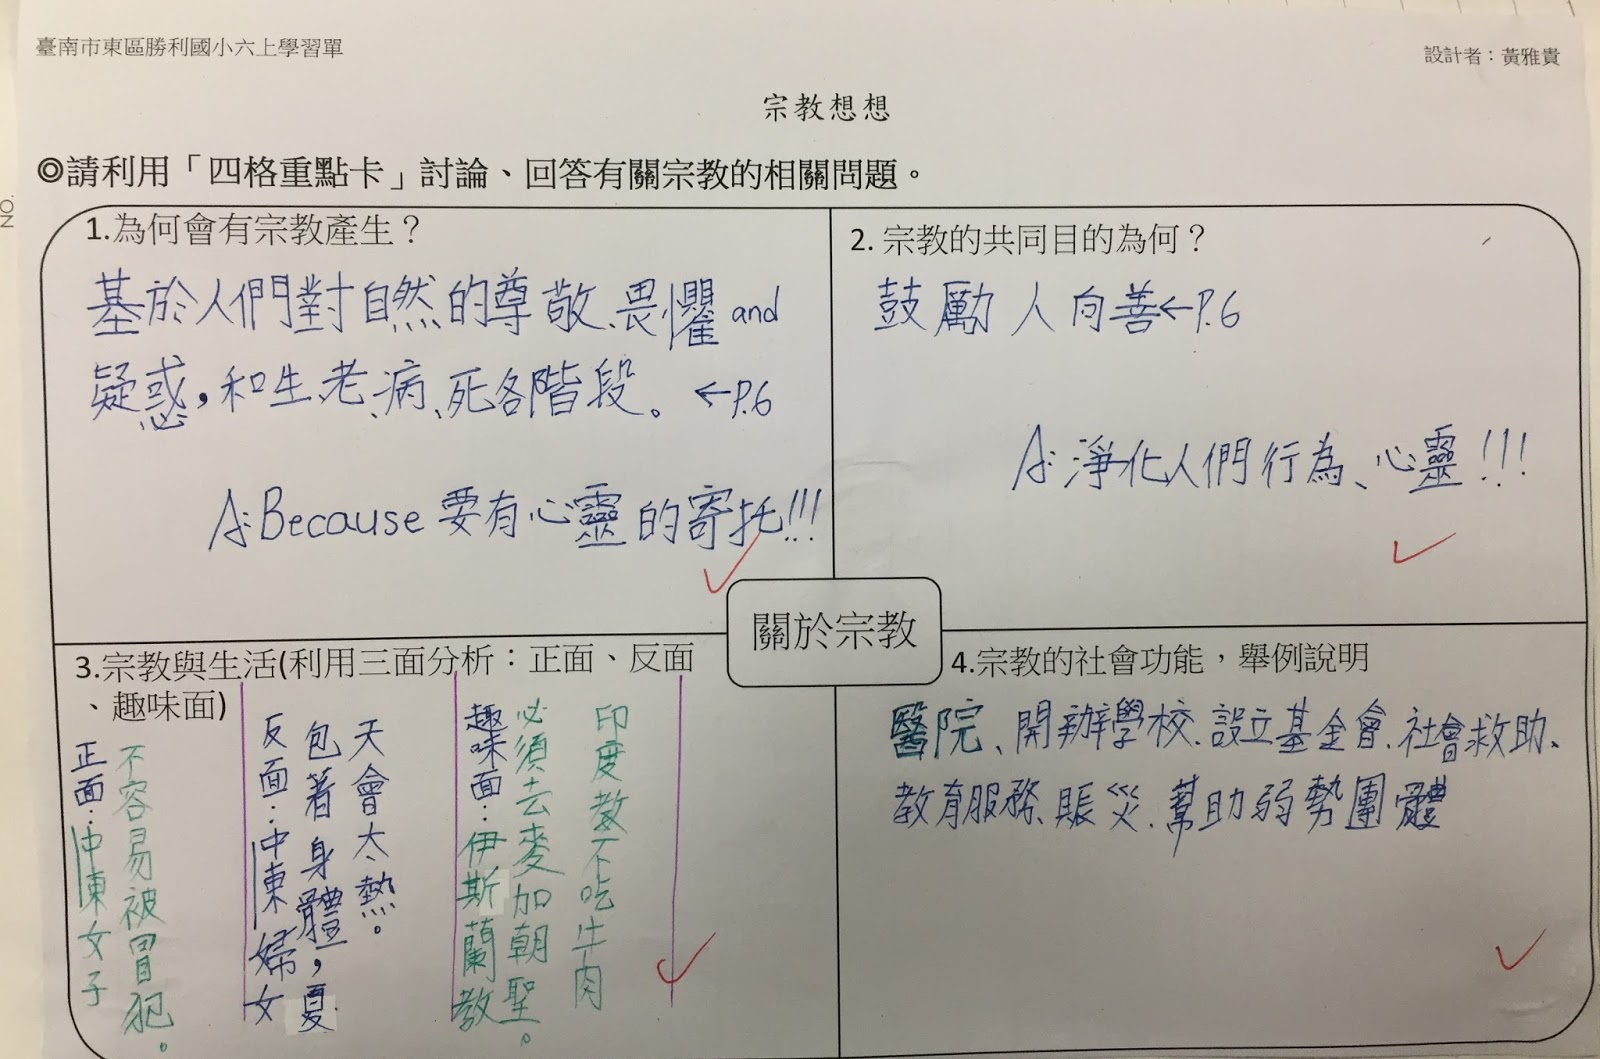 臺南市東區勝利國小六上學習單
設計者：黃雅貴
宗教想想
◎請利用「四格重點卡」討論、回答有關宗教的相關問題。
1.為何會有宗教產生？
基於人們對自然的尊敬、畏懼and
疑惑，和生、老、病、死各階段。←P.6
A:Because要有心靈的寄托!!!
2. 宗教的共同目的為何？
鼓勵人向善←P.6
A:淨化人們行為、心靈!!!
關於宗教
3.宗教與生活(利用三面分析：正面、反面
、趣味面)
正面：中東女子
不容易被冒犯。
反面：中東婦女
包著身體，夏
天會太熱。
趣味面：伊斯蘭教
必須去麥加朝聖。
印度教不吃牛肉
4.宗教的社會功能，舉例說明
醫院、開辦學校、設立基金會、社會救助、
教育服務、賑災、幫助弱勢團體
NO.